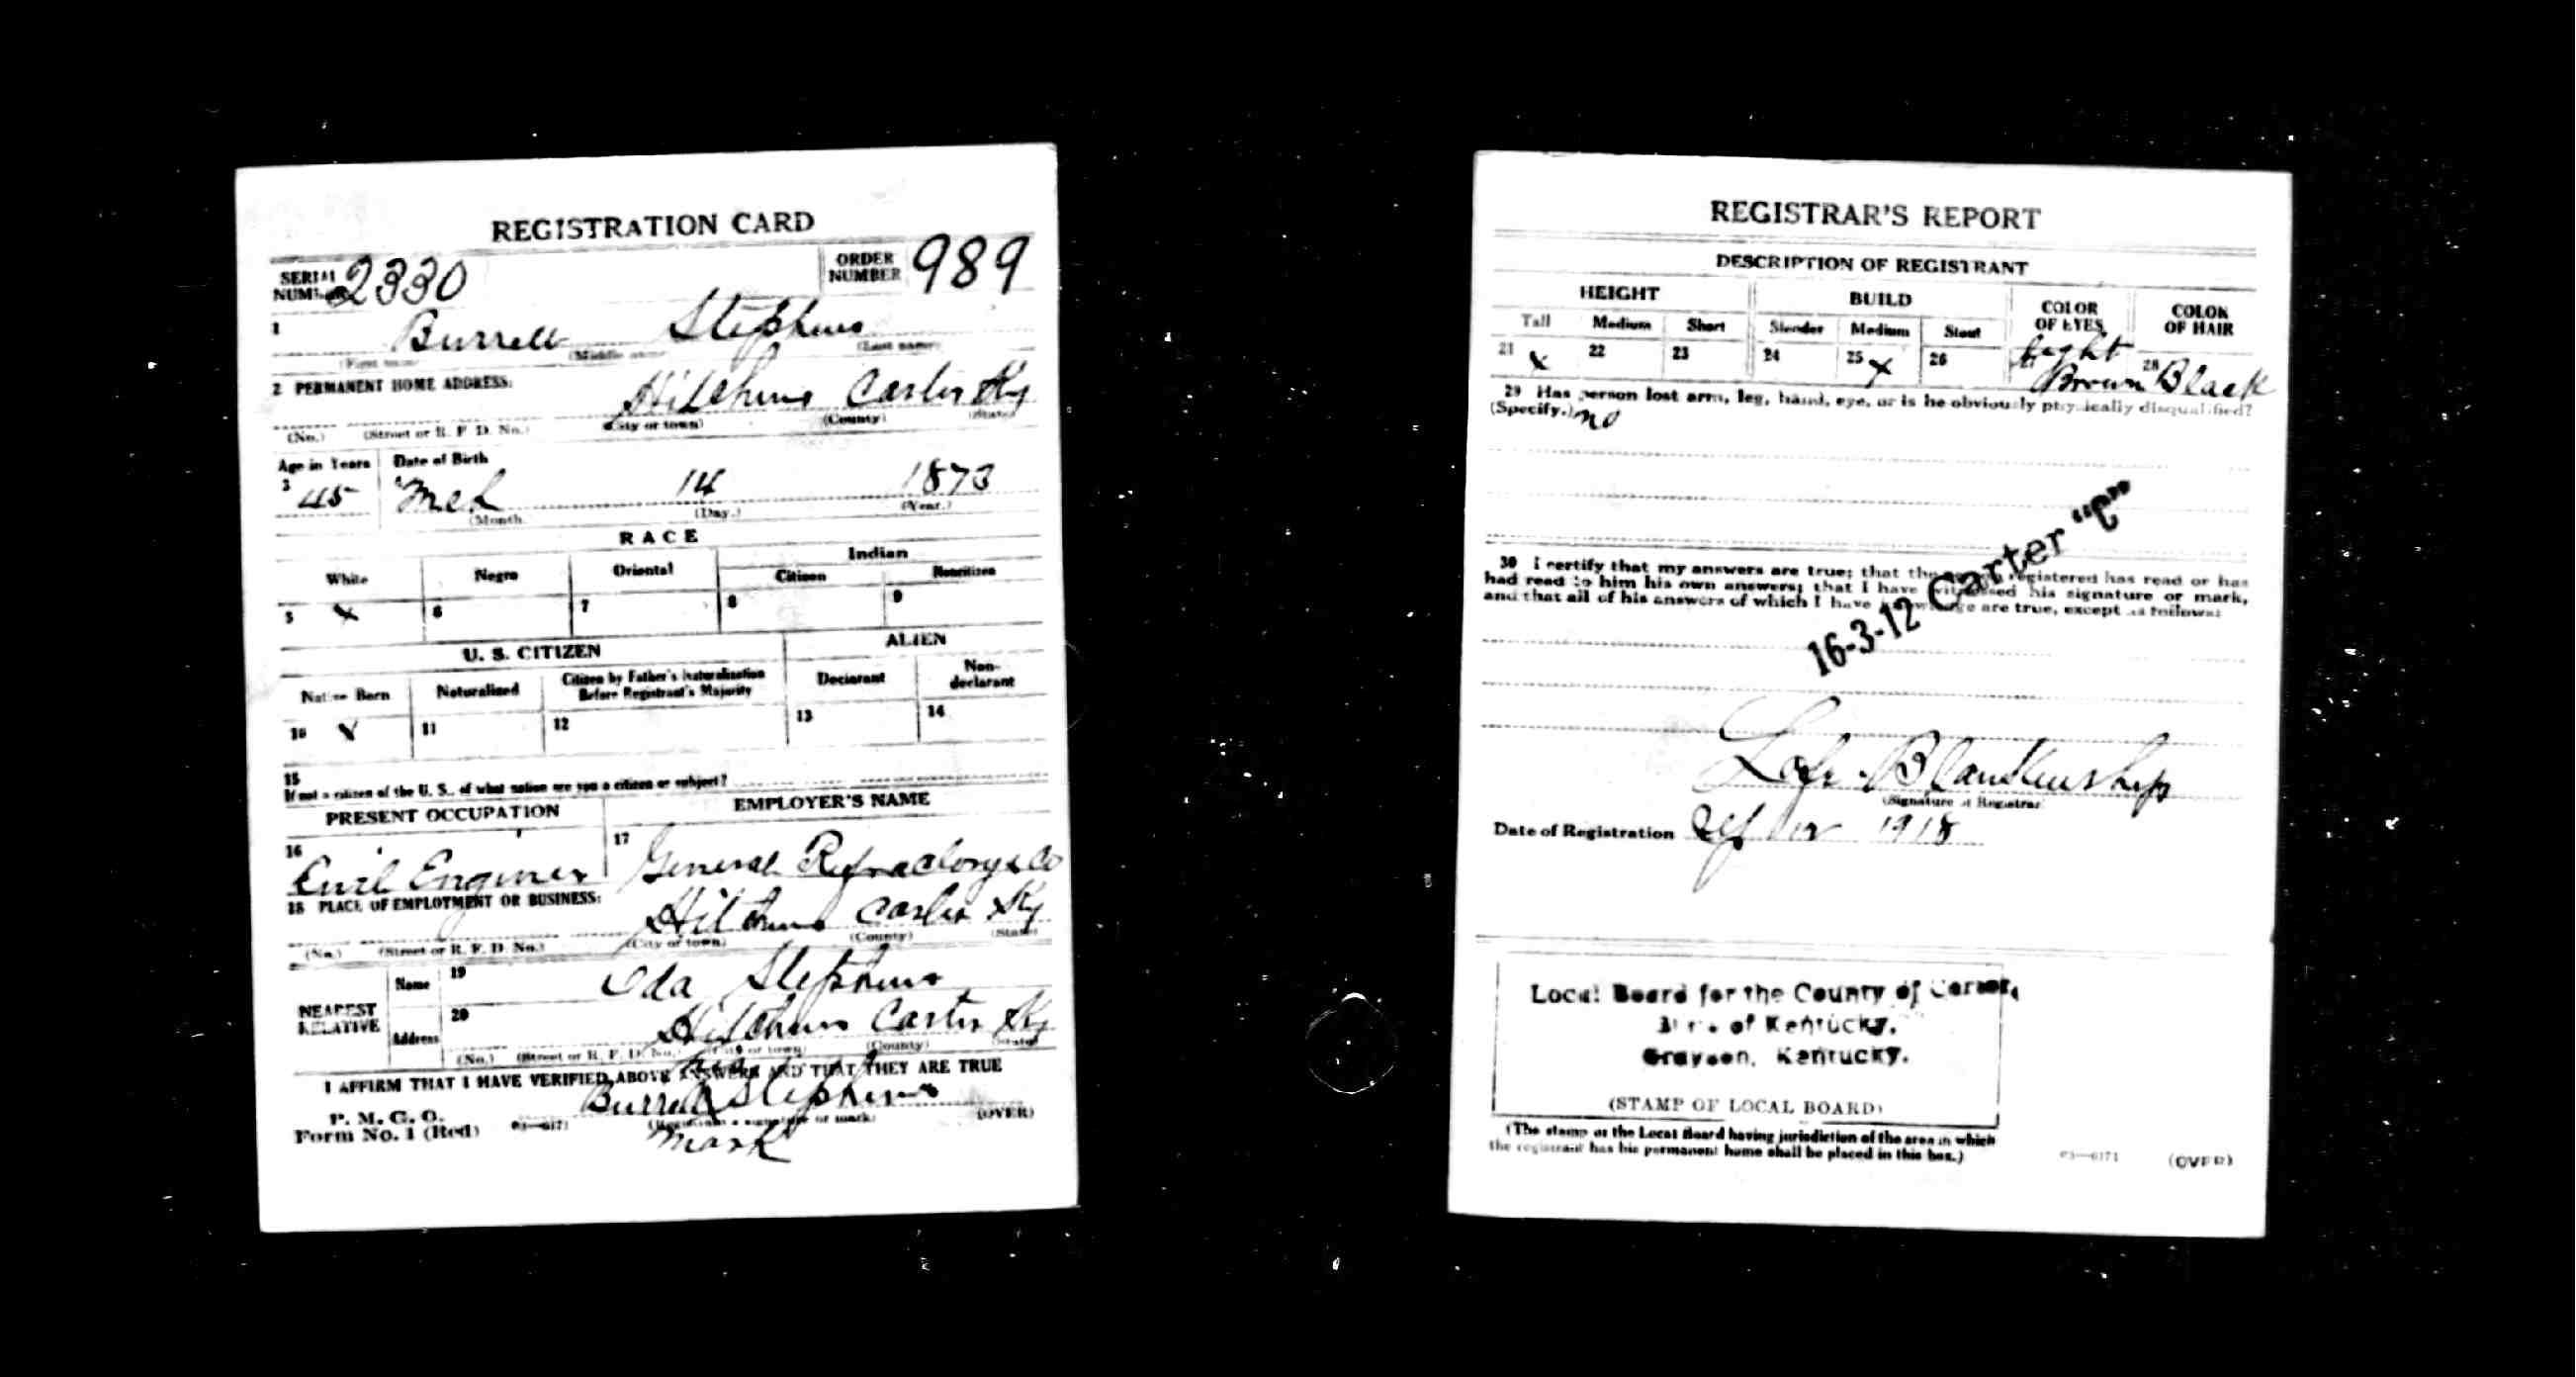 REGISTRATION CARD
SERIAL NUMBER 2330
ORDER NUMBER 989
1 Burrell Stephens
(First name) (Middle name) (Last name)
2 PERMANENT HOME ADDRESS:
Hitchins Carter Ky
(No.) (Street or R. F. D. No.) (City or town) (County) (State)
Age in Years Date of Birth
3 45 Mch 14 1873
(Month (Day.) (Year.)
RACE
White Negro Oriental Indian
Citizen Noncitizen
5 X 6 7 8 9
U. S. CITIZEN ALIEN
Native Born Naturalized Citizen by Father's Naturalization Before Registrant's Majority Declarant Non-declarant
10 X 11 12 13 14
15
If not a citizen of the U. S., of what nation are you a citizen or subject?
PRESENT OCCUPATION EMPLOYER'S NAME
16 17
Engineer General Refractorys Co
18 PLACE OF EMPLOYMENT OR BUSINESS:
Hitchins Carter Ky
(No.) (Street or R. F. D. No.) (City or town) (County) (State)
NEAREST RELATIVE
Name 19 Ida Stephens
Address 20 Hitchins Carter Ky
(No.) (Street or R. F. D. No.) (City or town) (County) (State)
I AFFIRM THAT I HAVE VERIFIED ABOVE ANSWERS AND THAT THEY ARE TRUE
his
Burrell X Stephens
P. M. G. O.
Form No. 1 (Red) (Registrant's signature or mark) (OVER)
mark
REGISTRAR'S REPORT
DESCRIPTION OF REGISTRANT
HEIGHT BUILD COLOR OF EYES COLOR OF HAIR
Tall Medium Short Slender Medium Stout
21 X 22 23 24 25 X 26 Light Brown 28 Black
29 Has person lost arm, leg, hand, eye, or is he obviously physically disqualified?
(Specify.) no
30 I certify that my answers are true; that the registered has read or has
had read to him his own answers; that I have witnessed his signature or mark,
and that all of his answers of which I have are true, except as follows:
16-3-12 Carter "C"
Blankenship
(Signature of Registrar)
Date of Registration Sep 12 1918
Local Board for the County of Carter,
of Kentucky.
Grayson, Kentucky.
(STAMP OF LOCAL BOARD)
(The stamp of the Local Board having jurisdiction of the area in which
the registrant has his permanent home shall be placed in this box.)
03—6171 (OVER)